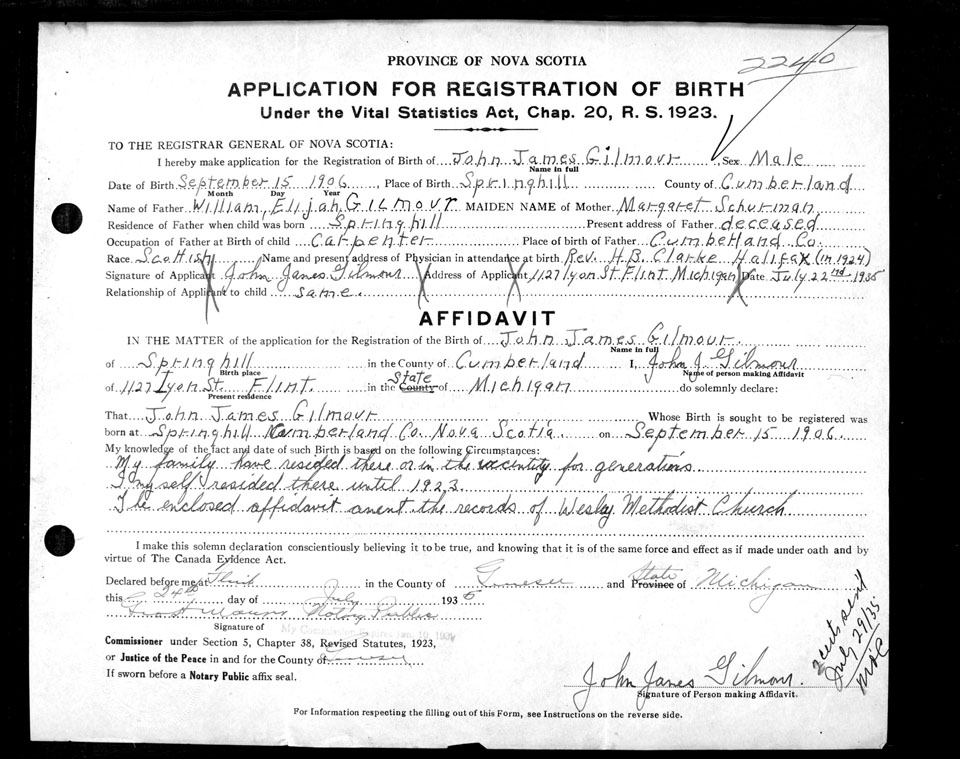 2240
PROVINCE OF NOVA SCOTIA
APPLICATION FOR REGISTRATION OF BIRTH
Under the Vital Statistics Act, Chap. 20, R. S. 1923.
TO THE REGISTRAR GENERAL OF NOVA SCOTIA:
I hereby make application for the Registration of Birth of John James Gilmour, Sex Male
Name in full
Date of Birth September 15 1906, Place of Birth Springhill County of Cumberland
Month Day Year
Name of Father William Elijah Gilmour MAIDEN NAME of Mother Margaret Schurman
Residence of Father when child was born Springhill Present address of Father deceased
Occupation of Father at Birth of child Carpenter Place of birth of Father Cumberland Co.
Race Scottish Name and present address of Physician in attendance at birth Rev. H.B. Clarke Halifax (in 1924)
Signature of Applicant John James Gilmour Address of Applicant 1127 Lyon St. Flint Michigan Date July 22nd 1935
Relationship of Applicant to child same.
AFFIDAVIT
IN THE MATTER of the application for the Registration of the Birth of John James Gilmour.
Name in full
of Springhill in the County of Cumberland I, John J. Gilmour
Birth place Name of person making Affidavit
of 1127 Lyon St. Flint. in the County State of Michigan do solemnly declare:
Present residence
That John James Gilmour Whose Birth is sought to be registered was
born at Springhill Cumberland Co. Nova Scotia on September 15 1906.
My knowledge of the fact and date of such Birth is based on the following Circumstances:
My family have resided there or in the vicinity for generations
I myself resided there until 1923.
The enclosed affidavit anent the records of Wesley Methodist Church.
I make this solemn declaration conscientiously believing it to be true, and knowing that it is of the same force and effect as if made under oath and by
virtue of The Canada Evidence Act.
Declared before me at Flint in the County of Genesee and State Province of Michigan
this 24th day of July 1935
Notary Public
Signature of
My Commission Expires Jan. 10
Commissioner under Section 5, Chapter 38, Revised Statutes, 1923,
or Justice of the Peace in and for the County of
If sworn before a Notary Public affix seal.
John James Gilmour.
Signature of Person making Affidavit.
2 certs sent
July 29/35
For Information respecting the filling out of this Form, see Instructions on the reverse side.